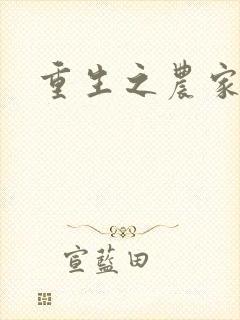 重生之農家
宣藍田